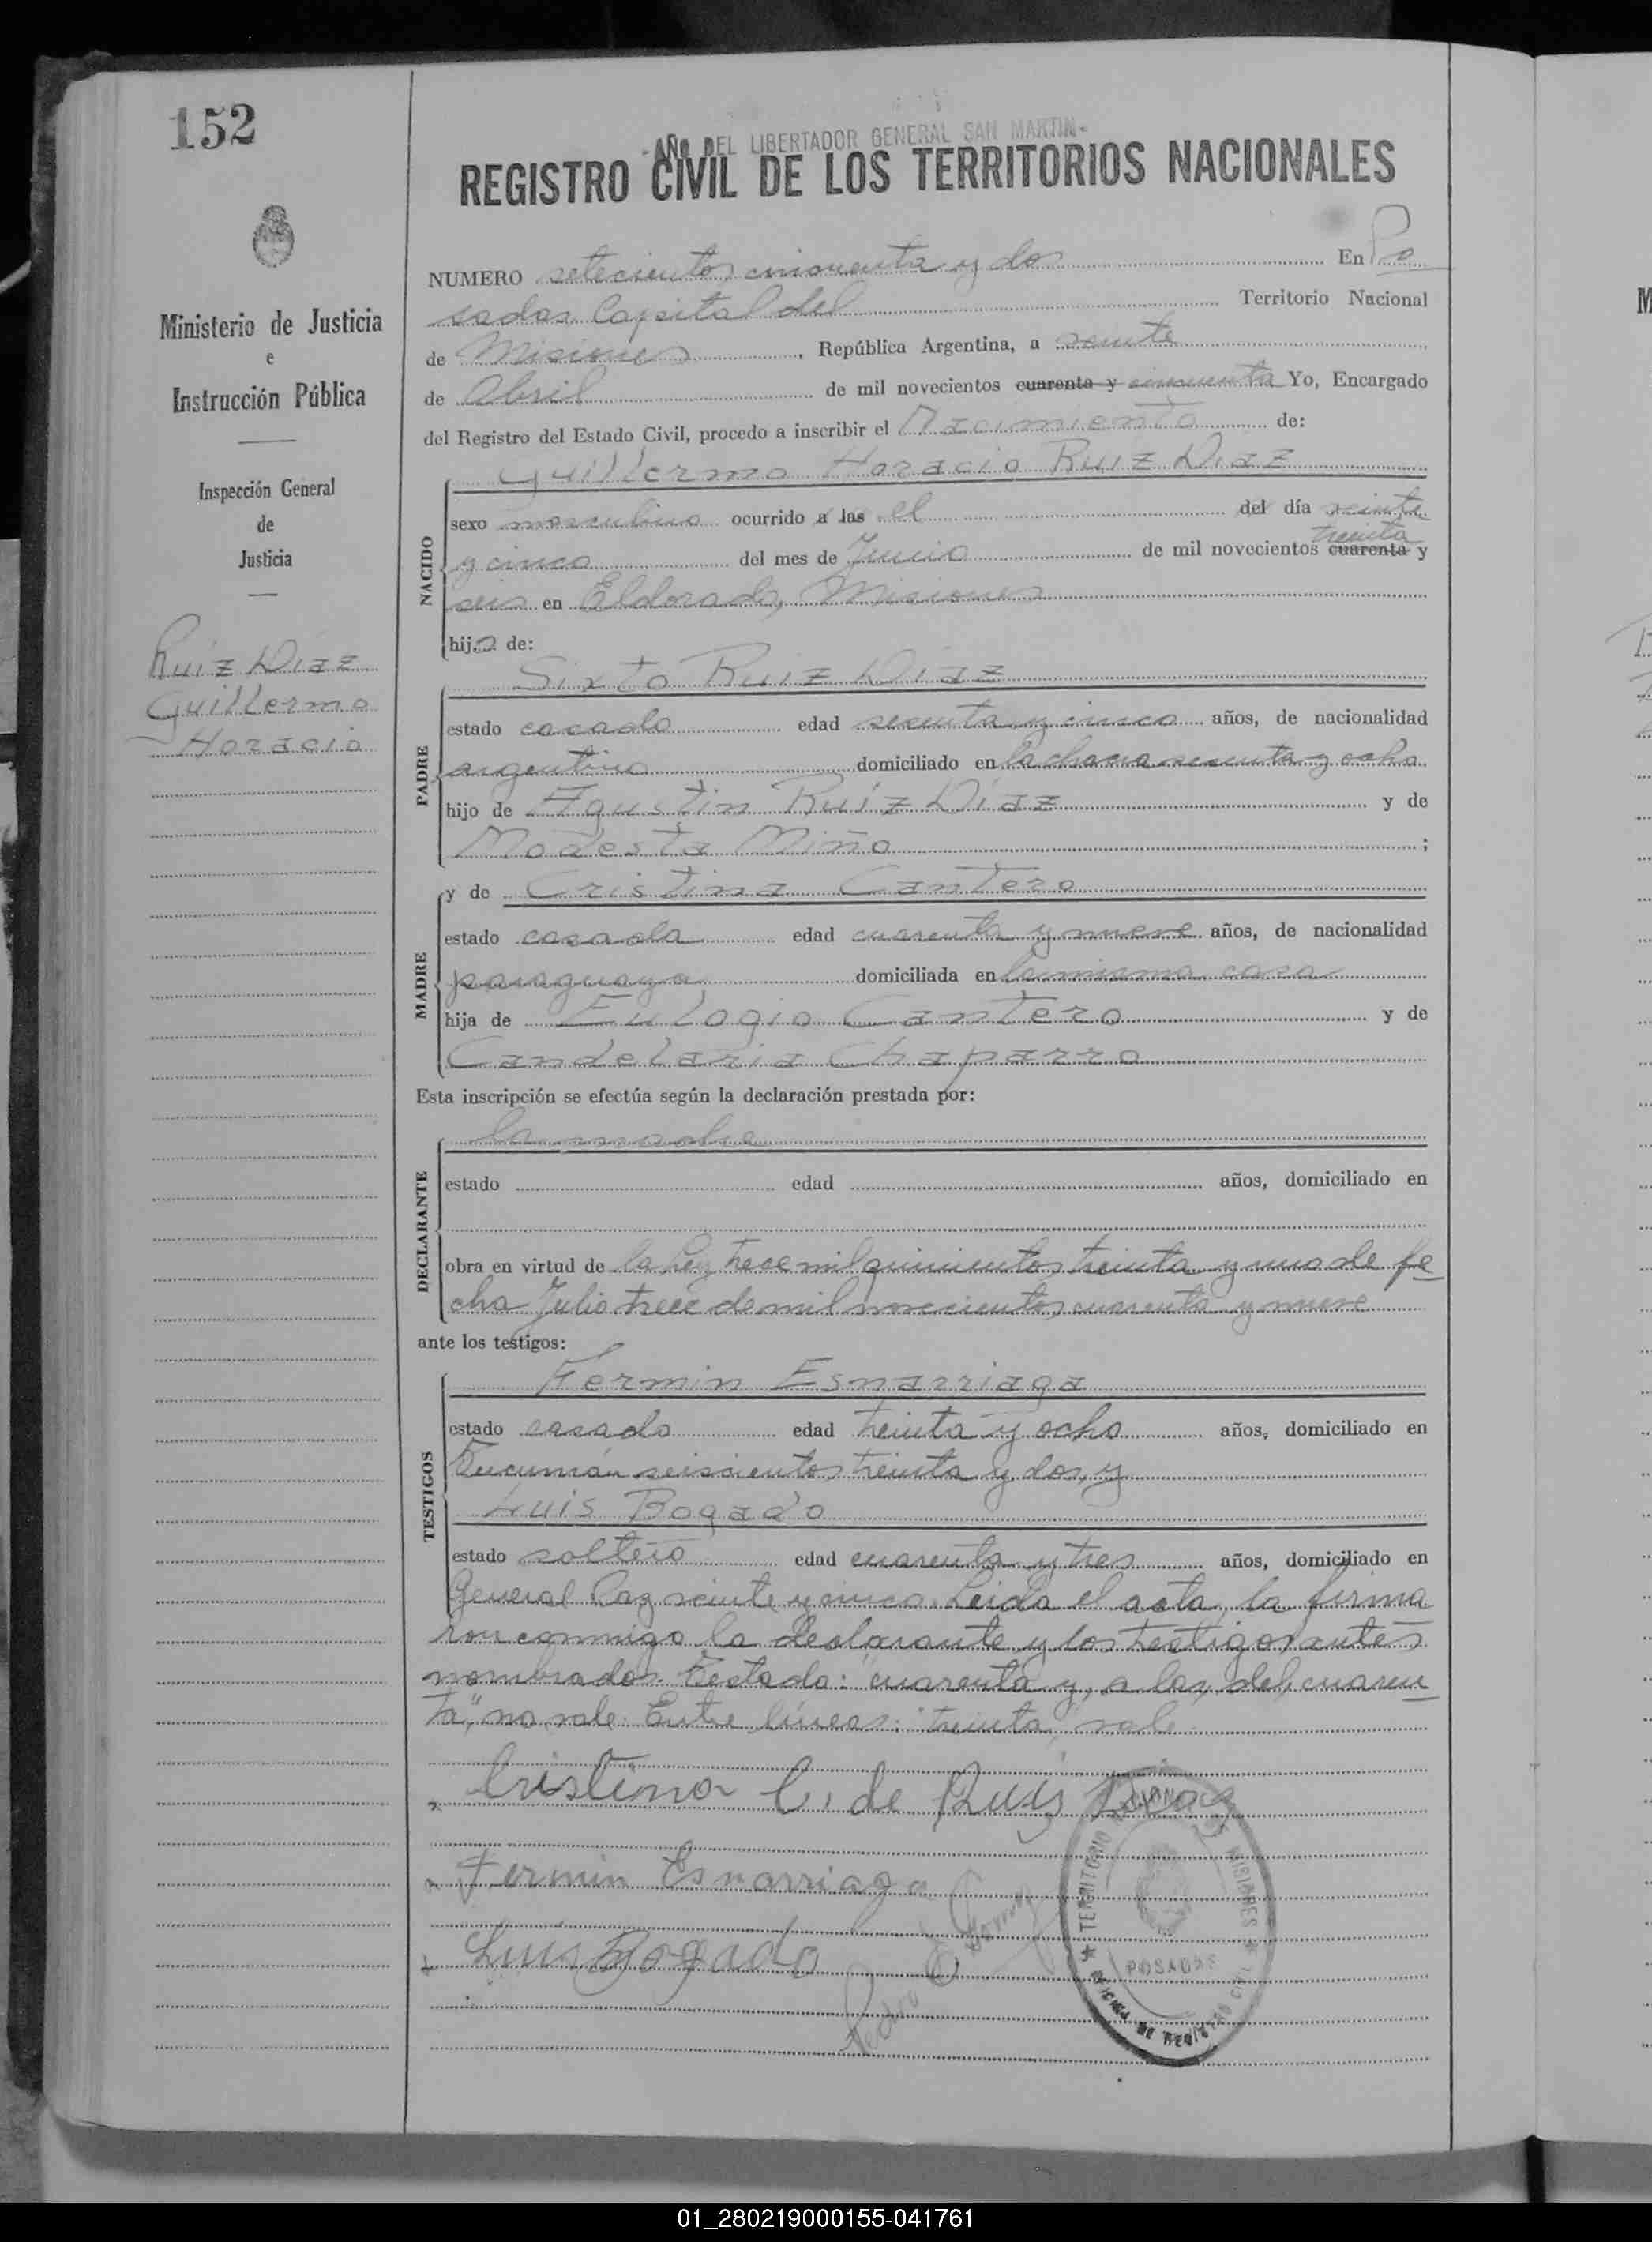 152
- AÑO DEL LIBERTADOR GENERAL SAN MARTIN -
REGISTRO CIVIL DE LOS TERRITORIOS NACIONALES
Ministerio de Justicia
e
Instrucción Pública
Inspección General
de
Justicia
Ruiz Diaz
Guillermo
Horacio
NUMERO setecientos cincuenta y dos En Po
sadas Capital del Territorio Nacional
de Misiones, República Argentina, a veinte
de Abril de mil novecientos cuarenta y cincuenta Yo, Encargado
del Registro del Estado Civil, procedo a inscribir el Nacimiento de:
NACIDO
Guillermo Horacio Ruiz Diaz
sexo masculino ocurrido a las el del día veinte
y cinco del mes de Junio de mil novecientos cuarenta treinta y
seis en Eldorado, Misiones
hijo de:
PADRE
Sixto Ruiz Diaz
estado casado edad sesenta y cinco años, de nacionalidad
argentino domiciliado en la chacra sesenta y ocho
hijo de Agustin Ruiz Diaz y de
Modesta Miño ;
MADRE
y de Cristina Cantero
estado casada edad cuarenta y nueve años, de nacionalidad
paraguaya domiciliada en la misma casa
hija de Eulogio Cantero y de
Candelaria Chaparro
Esta inscripción se efectúa según la declaración prestada por:
DECLARANTE
la madre
estado edad años, domiciliado en
obra en virtud de la Ley trece mil quinientos treinta y uno de fe
cha Julio trece de mil novecientos cuarenta y nueve
ante los testigos:
TESTIGOS
Fermin Esnarriaga
estado casado edad treinta y ocho años, domiciliado en
Tucumán seiscientos treinta y dos, y
Luis Bogado
estado soltero edad cuarenta y tres años, domiciliado en
General Paz veinte y cinco. Leida el acta, la firma
ron conmigo la declarante y los testigos antes
nombrados. Testado: "cuarenta y, a las, del, cuaren
ta", no vale. Entre líneas: "treinta" vale.
Cristina C. de Ruis Diaz
Fermin Esnarriaga
Luis Bogado
Pedro
TERRITORIO NACIONAL DE MISIONES
POSADAS
OFICINA DE REGISTRO CIVIL
01_280219000155-041761